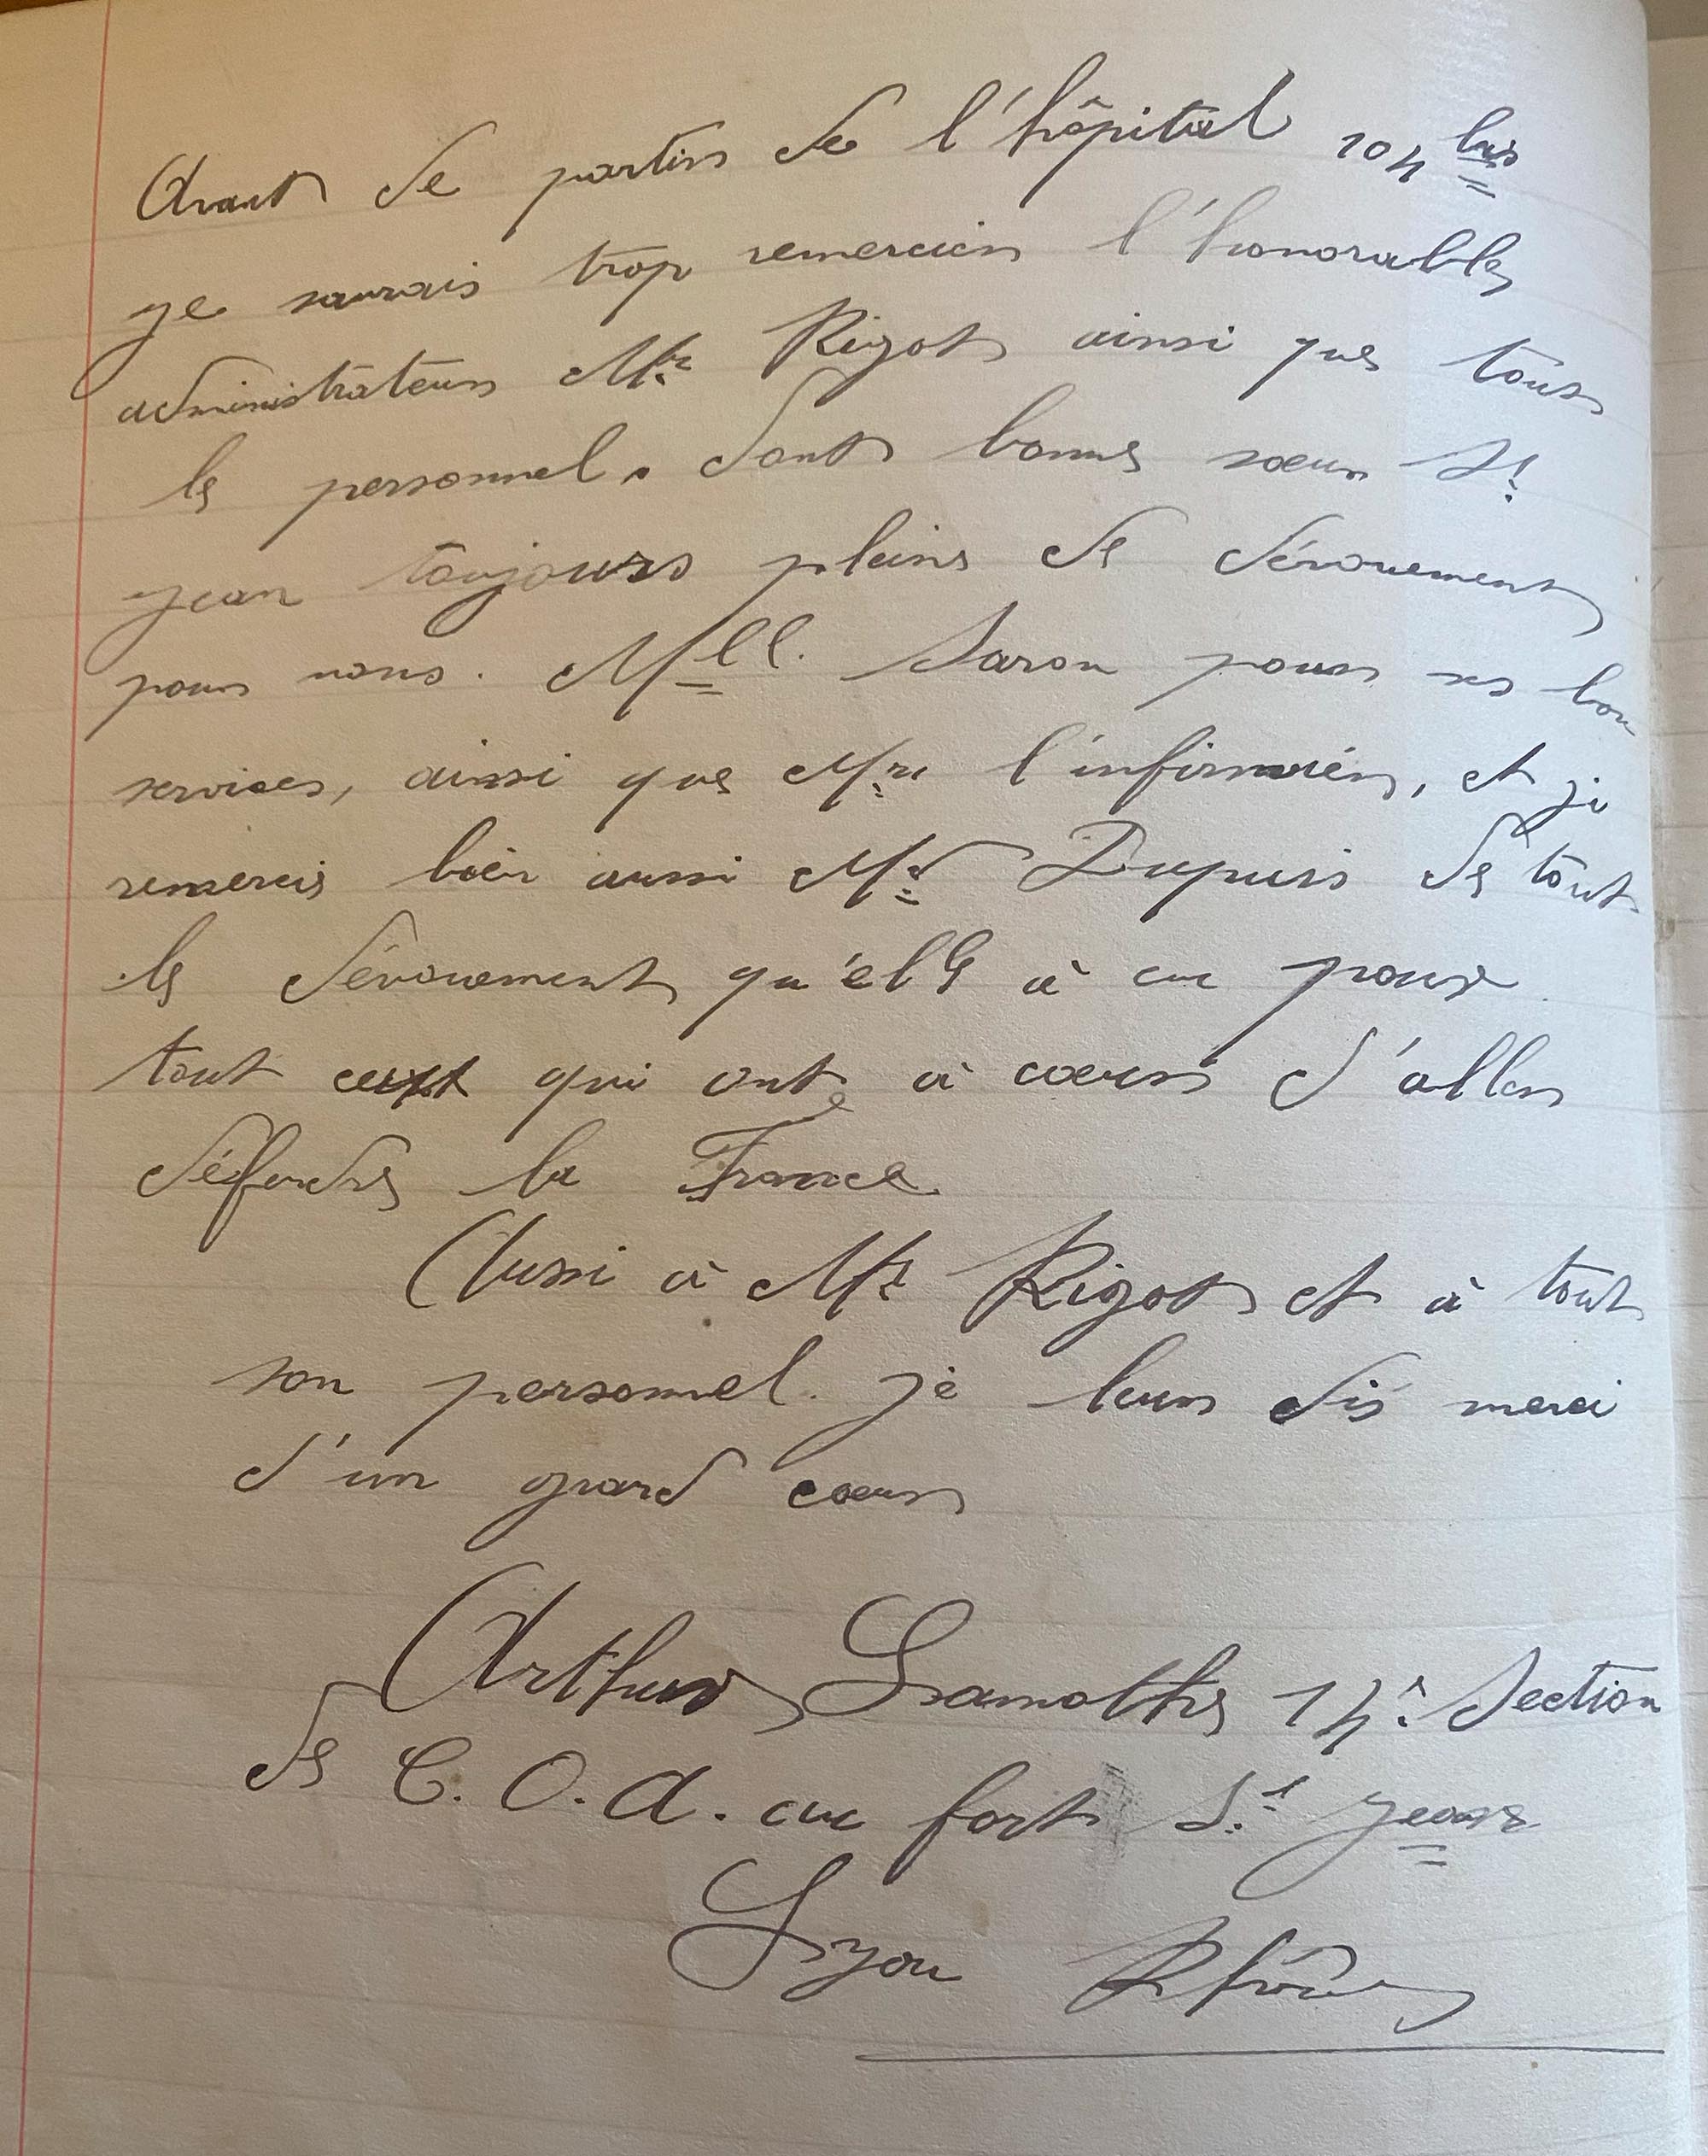 Avant de partir de l'hôpital 104 bis
je saurais trop remercier l'honorable
administrateur Mr Rigot ainsi que tous
le personnel. dont bonne sœur St
jean toujours pleins de dévouement
pour nous. Mll. Saron pour ses bon
services, ainsi que Mr l'infirmier, et je
remercie bien aussi Md Dupuis de tout
le dévouement qu'elle à eu pour
tout ceux qui ont à cœur d'aller
défendre la France
Aussi à Mr Rigot et à tout
son personnel. je leur dis merci
d'un grand cœur
Arthur Lamothe 14e Section
de C. O. A. au fort St jean
Lyon Rhône